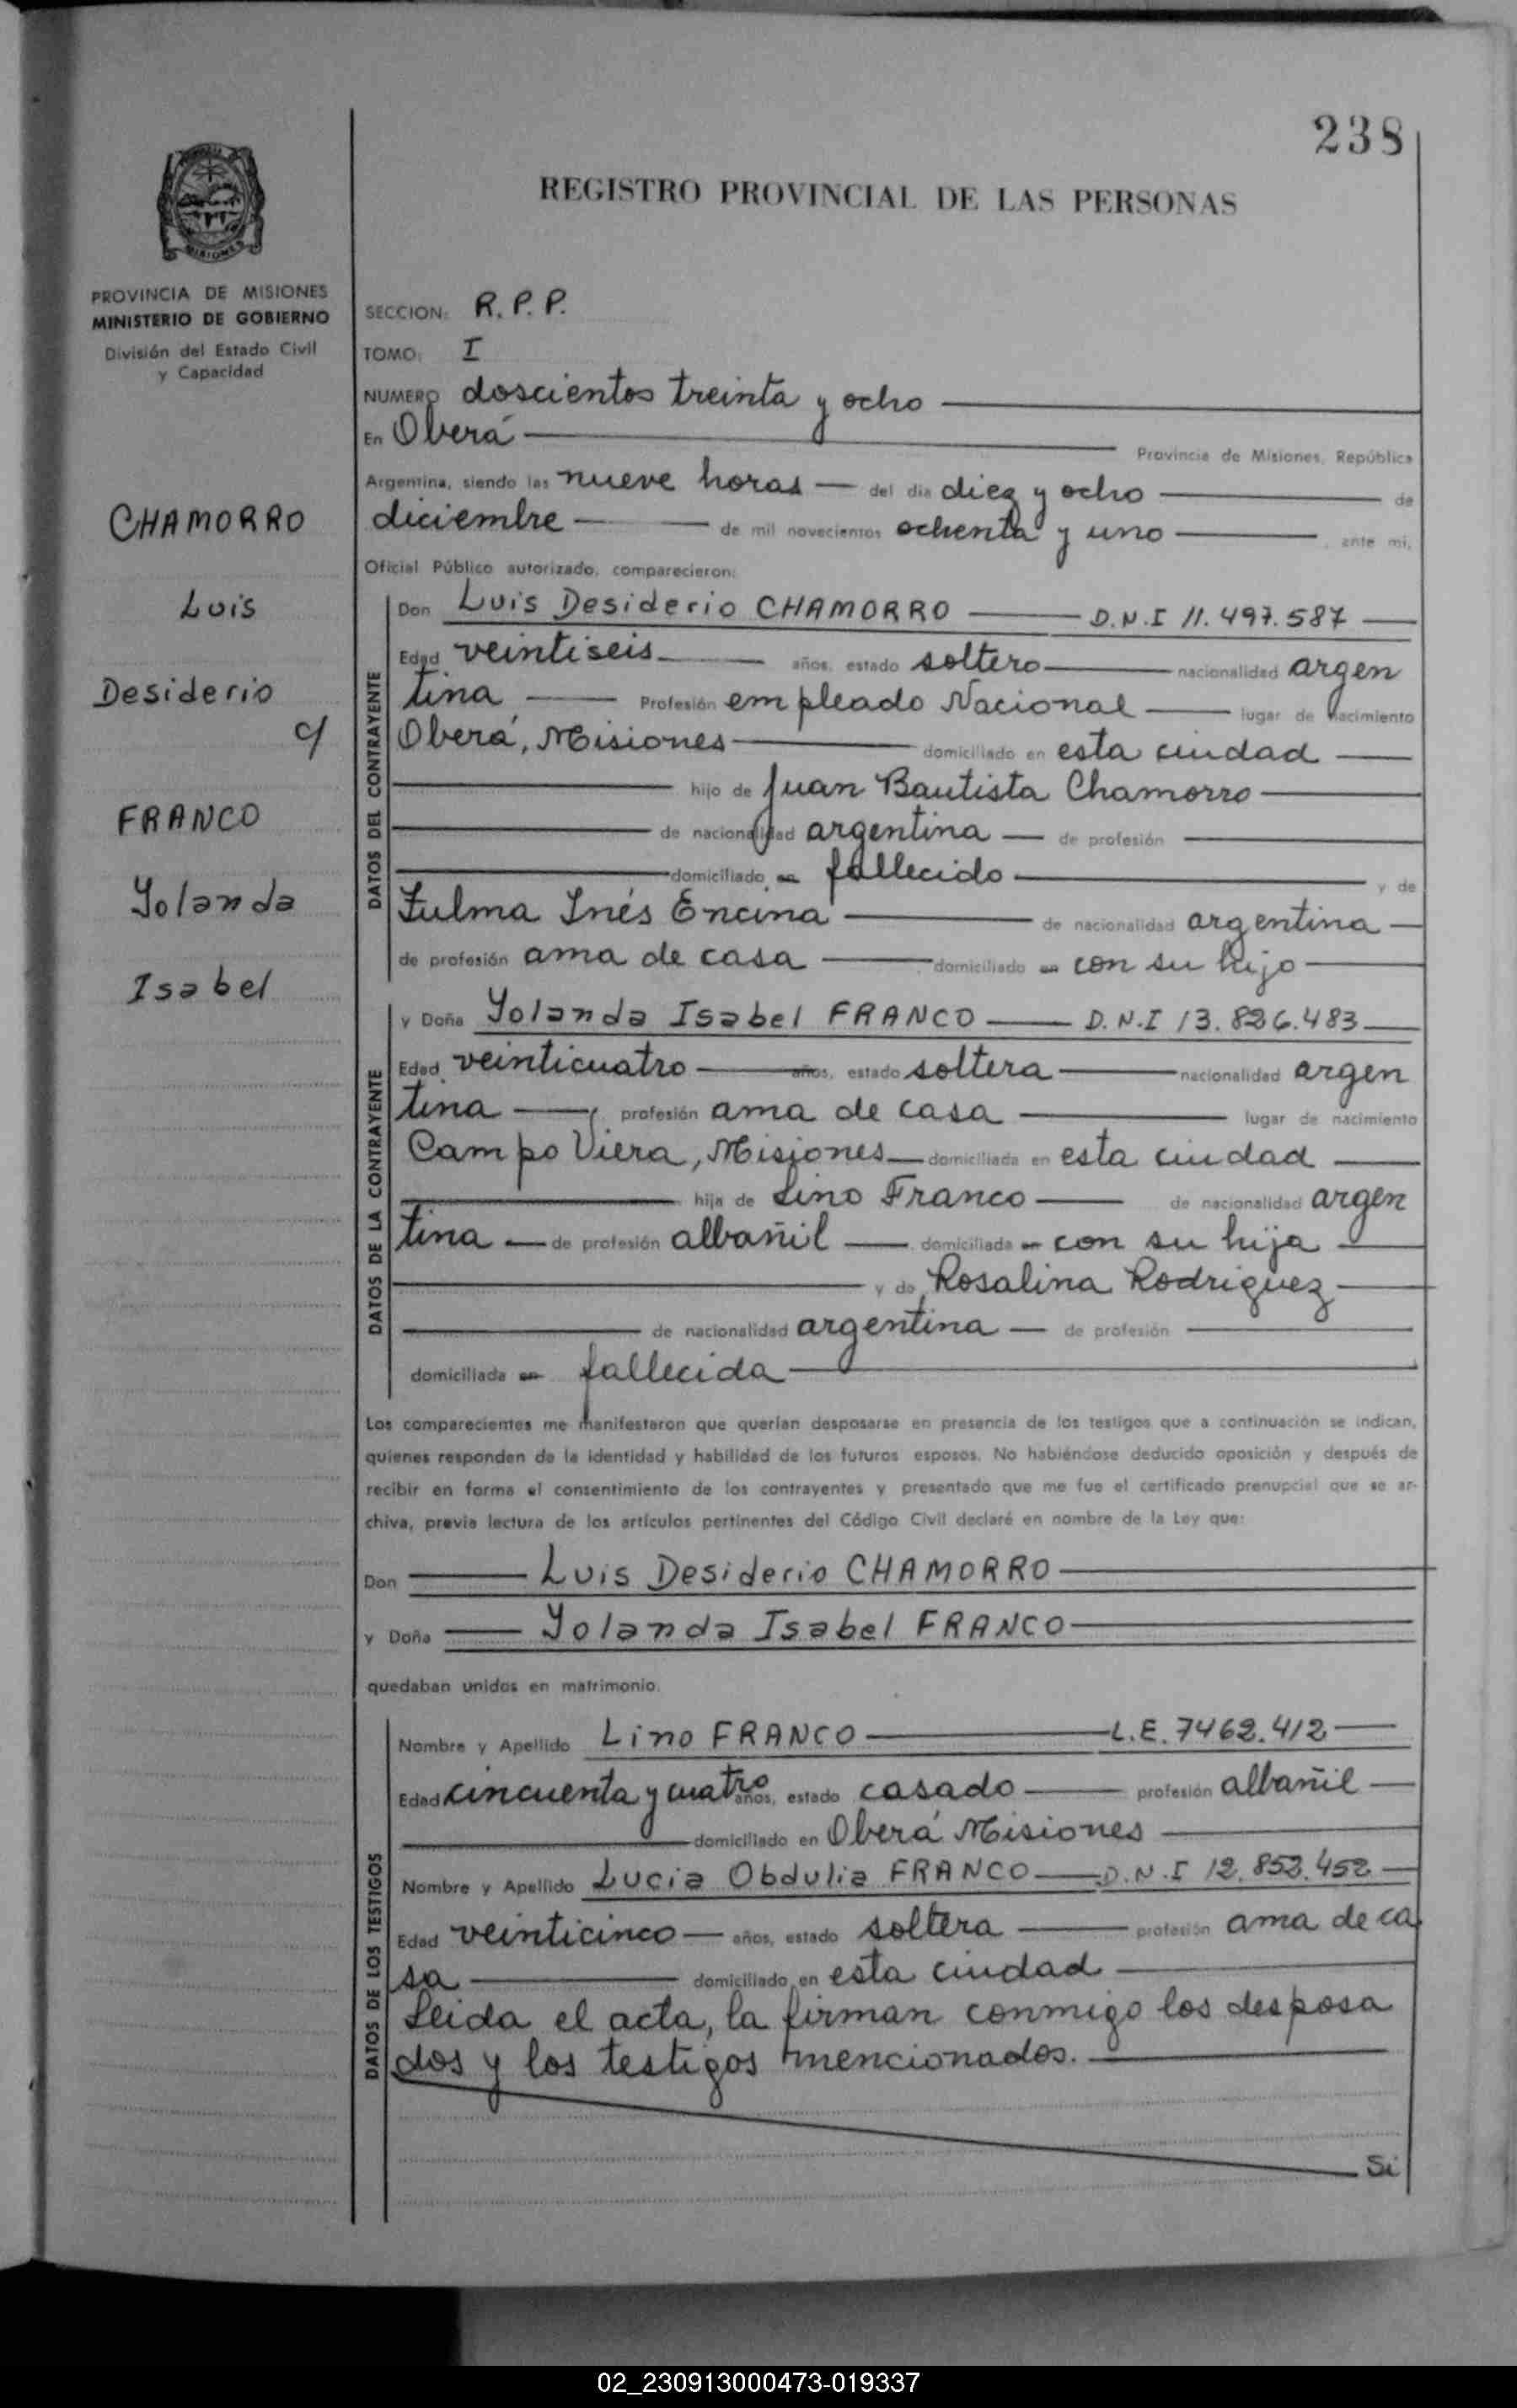 238
REGISTRO PROVINCIAL DE LAS PERSONAS
MISIONES
PROVINCIA DE MISIONES
MINISTERIO DE GOBIERNO
División del Estado Civil
y Capacidad
CHAMORRO
Luis
Desiderio
c/
FRANCO
Yolanda
Isabel
SECCION: R. P. P.
TOMO: I
NUMERO doscientos treinta y ocho
En Oberá Provincia de Misiones, República
Argentina, siendo las nueve horas del día diez y ocho de
diciembre de mil novecientos ochenta y uno, ante mi,
Oficial Público autorizado, comparecieron:
DATOS DEL CONTRAYENTE
Don Luis Desiderio CHAMORRO D.N.I 11.497.587
Edad veintiseis años, estado soltero nacionalidad argen
tina Profesión empleado Nacional lugar de nacimiento
Oberá, Misiones domiciliado en esta ciudad
hijo de Juan Bautista Chamorro
de nacionalidad argentina de profesión
domiciliado en fallecido y de
Zulma Inés Encina de nacionalidad argentina
de profesión ama de casa domiciliado en con su hijo
DATOS DE LA CONTRAYENTE
y Doña Yolanda Isabel FRANCO D.N.I 13.826.483
Edad veinticuatro años, estado soltera nacionalidad argen
tina profesión ama de casa lugar de nacimiento
Campo Viera, Misiones domiciliada en esta ciudad
hija de Lino Franco de nacionalidad argen
tina de profesión albañil domiciliada en con su hija
y de Rosalina Rodriguez
de nacionalidad argentina de profesión
domiciliada en fallecida
Los comparecientes me manifestaron que querían desposarse en presencia de los testigos que a continuación se indican,
quienes responden de la identidad y habilidad de los futuros esposos. No habiéndose deducido oposición y después de
recibir en forma el consentimiento de los contrayentes y presentado que me fue el certificado prenupcial que se ar-
chiva, previa lectura de los artículos pertinentes del Código Civil declaré en nombre de la Ley que:
Don Luis Desiderio CHAMORRO
y Doña Yolanda Isabel FRANCO
quedaban unidos en matrimonio.
DATOS DE LOS TESTIGOS
Nombre y Apellido Lino FRANCO L.E. 7462.412
Edad cincuenta y cuatro años, estado casado profesión albañil
domiciliado en Oberá Misiones
Nombre y Apellido Lucia Obdulia FRANCO D.N.I 12.852.452
Edad veinticinco años, estado soltera profesión ama de ca
sa domiciliado en esta ciudad
Leida el acta, la firman conmigo los desposa
dos y los testigos mencionados.
Si
02_230913000473-019337